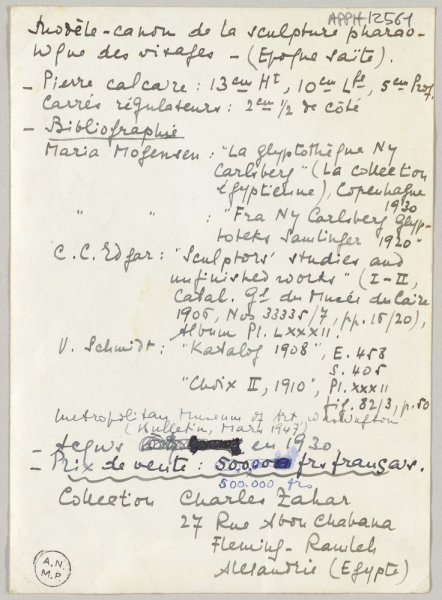 APPH 12561
modèle-canon de la sculpture pharao-
nique des visages - (Epoque saïte).
- Pierre calcaire : 13 cm Ht, 10 cm Lge, 5 cm Prof.
Carrés régulateurs : 2 cm 1/2 de côté
- Bibliographie
Maria Mogensen : "La glyptothèque Ny
Carlsberg" (La collection
égyptienne), Copenhague
1930
" " : "Fra Ny Carlsberg Glyp-
toteks Samlinger 1920"
C. C. Edgar : "Sculptors' studies and
unfinished works" (I-II,
Catal. Gl du Musée du Caire
1906, Nos 33335/7, pp. 15/20),
Album Pl. LXXXII.
V. Schmidt : "Katalog 1908", E. 458
S. 405
"Choix II, 1910", Pl. XXXII
fig. 82/3, p. 50
Metropolitan Museum of Art, Washington
(Bulletin, Mars 1947)
- Acquis en 1930
- Prix de vente : 500.000 frs français.
500.000 frs
Collection Charles Zahar
27 Rue Abou Chabana
Fleming - Ramleh
Alexandrie (Egypte)
A.N.
M.P.